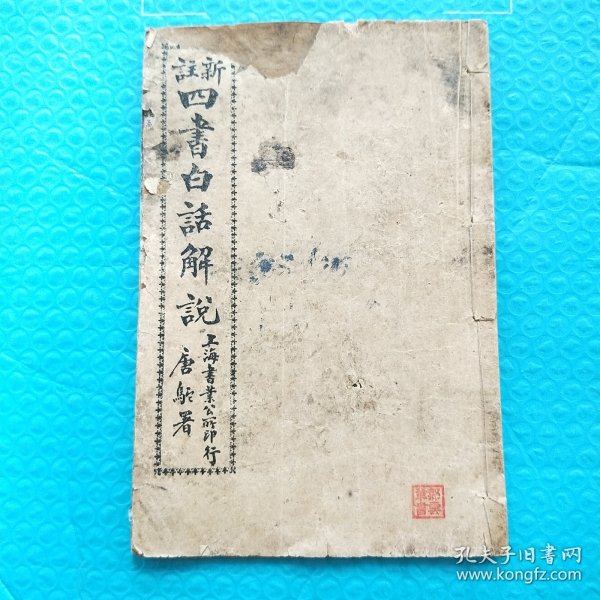 新註
四書白話解說
上海書業公所印行
唐駝署
孔夫子旧书网
www.kongfz.com